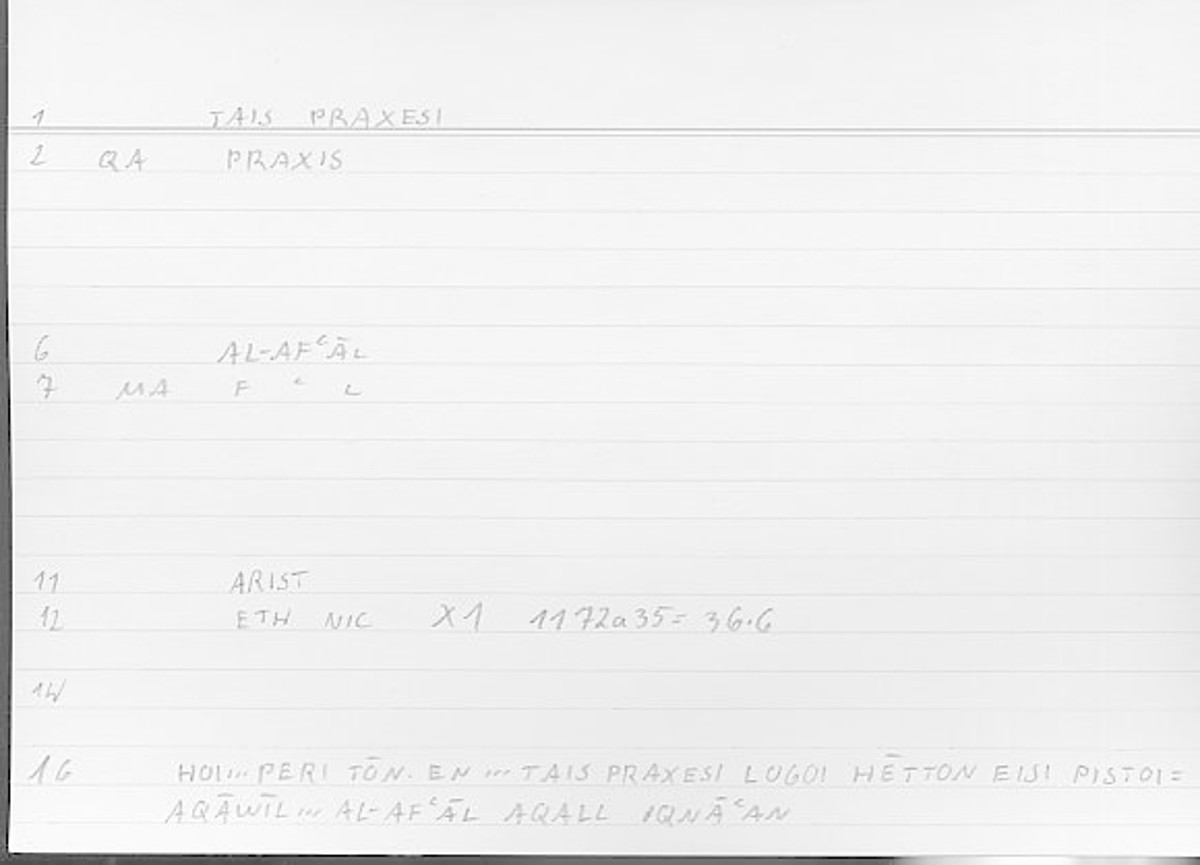 1 TAIS PRAXESI
2 QA PRAXIS
6 AL-AFʿĀL
7 MA F ʿ L
11 ARIST
12 ETH NIC X1 1172a35= 36.6
14
16 HOI... PERI TŌN. EN ... TAIS PRAXESI LOGOI HĒTTON EISI PISTOI=
AQĀWĪL... AL-AFʿĀL AQALL IQNĀʿAN